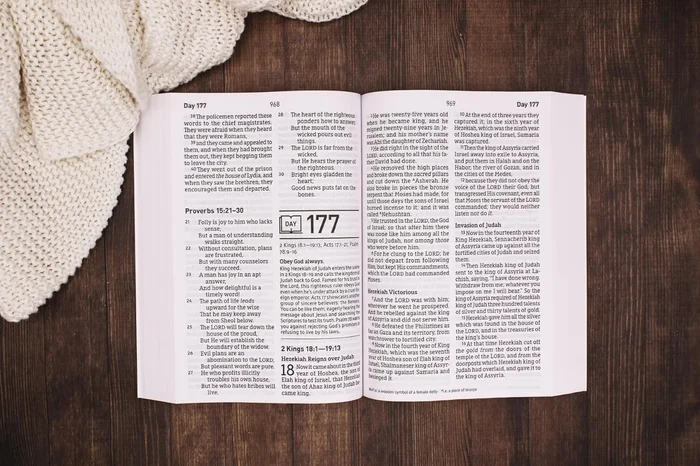 Day 177
968
38 The policemen reported these
words to the chief magistrates.
They were afraid when they heard
that they were Romans,
39 and they came and appealed to
them, and when they had brought
them out, they kept begging them
to leave the city.
40 They went out of the prison
and entered the house of Lydia, and
when they saw the brethren, they
encouraged them and departed.
Proverbs 15:21–30
21 Folly is joy to him who lacks
sense,
But a man of understanding
walks straight.
22 Without consultation, plans
are frustrated,
But with many counselors
they succeed.
23 A man has joy in an apt
answer,
And how delightful is a
timely word!
24 The path of life leads
upward for the wise
That he may keep away
from Sheol below.
25 The LORD will tear down the
house of the proud,
But He will establish the
boundary of the widow.
26 Evil plans are an
abomination to the LORD,
But pleasant words are pure.
27 He who profits illicitly
troubles his own house,
But he who hates bribes will
live.
28 The heart of the righteous
ponders how to answer,
But the mouth of the
wicked pours out evil
things.
29 The LORD is far from the
wicked,
But He hears the prayer of
the righteous.
30 Bright eyes gladden the
heart;
Good news puts fat on the
bones.
DAY 177
2 Kings 18:1–19:13; Acts 17:1–21; Psalm
Obey God always.
King Hezekiah of Judah enters the scene
in 2 Kings 18 and calls the kingdom of
Judah back to God. Famed for his trust in
the Lord, this righteous ruler obeys God
even when he's under attack by a cruel for-
eign emperor. Acts 17 showcases another
group of sincere believers: the Bereans.
You can be like them, eagerly hearing the
message about Jesus and searching the
Scriptures to test its truth. Psalm
you against rejecting God's promises or
refusing to live by his laws.
2 Kings 18:1—19:13
Hezekiah Reigns over Judah
18 Now it came about in the third
year of Hoshea, the son of
Elah king of Israel, that Hezekiah
the son of Ahaz king of Judah be-
came king.
969
Day 177
2 He was twenty-five years old
when he became king, and he
reigned twenty-nine years in Je-
rusalem; and his mother's name
was Abi the daughter of Zechariah.
3 He did right in the sight of the
LORD, according to all that his fa-
ther David had done.
4 He removed the high places
and broke down the sacred pillars
and cut down the Asherah. He
also broke in pieces the bronze
serpent that Moses had made, for
until those days the sons of Israel
burned incense to it; and it was
called Nehushtan.
5 He trusted in the LORD, the God
of Israel; so that after him there
was none like him among all the
kings of Judah, nor among those
who were before him.
6 For he clung to the LORD; he
did not depart from following
Him, but kept His commandments,
which the LORD had commanded
Moses.
Hezekiah Victorious
7 And the LORD was with him;
wherever he went he prospered.
And he rebelled against the king
of Assyria and did not serve him.
8 He defeated the Philistines as
far as Gaza and its territory, from
watchtower to fortified city.
9 Now in the fourth year of King
Hezekiah, which was the seventh
year of Hoshea son of Elah king of
Israel, Shalmaneser king of Assyr-
ia came up against Samaria and
besieged it.
10 At the end of three years they
captured it; in the sixth year of
Hezekiah, which was the ninth year
of Hoshea king of Israel, Samaria
was captured.
11 Then the king of Assyria carried
Israel away into exile to Assyria,
and put them in Halah and on the
Habor, the river of Gozan, and in
the cities of the Medes,
12 because they did not obey the
voice of the LORD their God, but
transgressed His covenant, even all
that Moses the servant of the LORD
commanded; they would neither
listen nor do it.
Invasion of Judah
13 Now in the fourteenth year of
King Hezekiah, Sennacherib king
of Assyria came up against all the
fortified cities of Judah and seized
them.
14 Then Hezekiah king of Judah
sent to the king of Assyria at La-
chish, saying, "I have done wrong.
Withdraw from me; whatever you
impose on me I will bear." So the
king of Assyria required of Hezekiah
king of Judah three hundred talents
of silver and thirty talents of gold.
15 Hezekiah gave him all the silver
which was found in the house of
the LORD, and in the treasuries of
the king's house.
16 At that time Hezekiah cut off
the gold from the doors of the
temple of the LORD, and from the
doorposts which Hezekiah king of
Judah had overlaid, and gave it to
the king of Assyria.
symbol of a female deity I.e. a piece of bronze